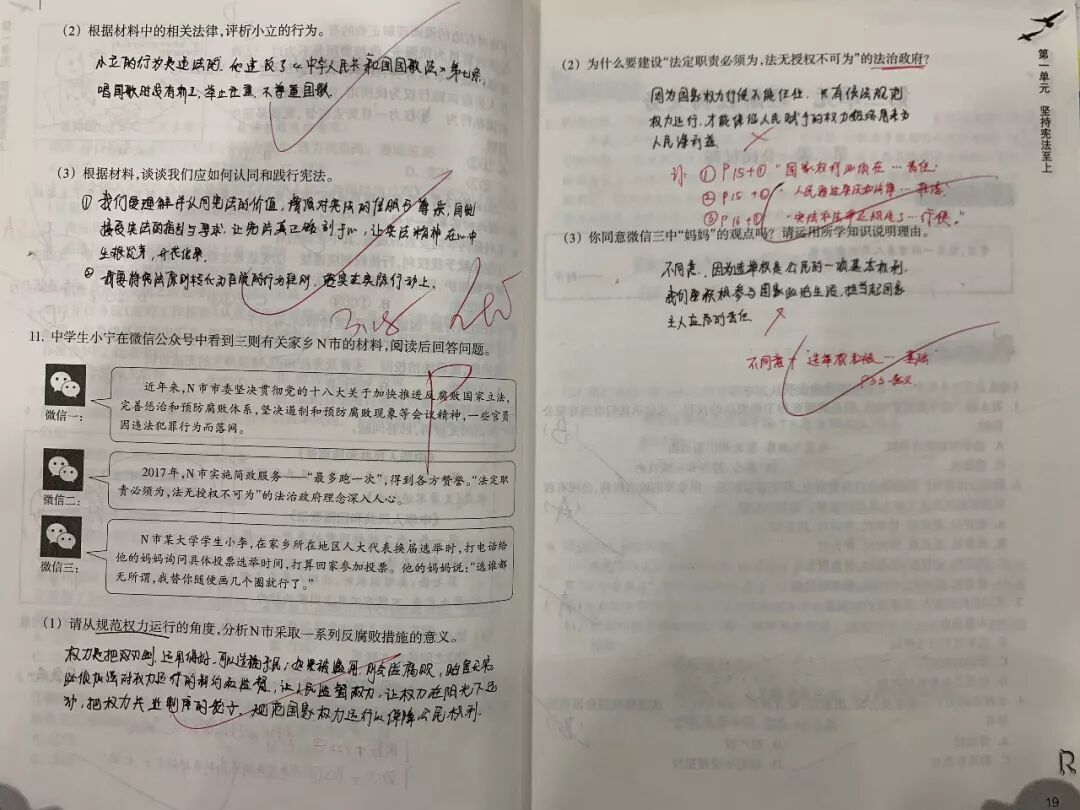 (2) 根据材料中的相关法律,评析小立的行为。
小立的行为是违法的,他违反了《中华人民共和国国歌法》第七条,
唱国歌时没有
不尊重国歌.
(3) 根据材料,谈谈我们应如何认同和践行宪法。
① 我们要理解并认同宪法的价值,增强对宪法的信服与尊崇,自觉
接受宪法的指引与要求,让宪法真正铭刻于心,让宪法精神在心中
生根发芽、开花结果.
② 我要将宪法原则转化为自觉的行为准则,落实在实际行动上.
3.18
11. 中学生小宁在微信公众号中看到三则有关家乡N市的材料,阅读后回答问题。
微信一:
近年来,N市市委坚决贯彻党的十八大关于加快推进反腐败国家立法,
完善惩治和预防腐败体系,坚决遏制和预防腐败现象等会议精神,一些官员
因违法犯罪行为而落网。
微信二:
2017年,N市实施简政服务——“最多跑一次”,得到各方赞誉。“法定职
责必须为,法无授权不可为”的法治政府理念深入人心。
微信三:
N市某大学学生小李,在家乡所在地区人大代表换届选举时,打电话给
他的妈妈询问具体投票选举时间,打算回家参加投票。他的妈妈说:“选谁都
无所谓,我替你随便画几个圈就行了。”
(1) 请从规范权力运行的角度,分析N市采取一系列反腐败措施的意义。
权力是把双刃剑,运用得好,可以造福于民;如果被滥用,则会滋生腐败,贻害无穷
必须加强对权力运行的制约和监督,让人民监督权力,让权力在阳光下运
行,把权力关进制度的笼子,规范国家权力运行以保障公民权利.
第一单元 坚持宪法至上
(2) 为什么要建设“法定职责必须为,法无授权不可为”的法治政府?
因为国家权力行使不能任性,只有依法规范
权力运行,才能保证人民赋予的权力始终用来为
人民谋利益.
① P15+① “国家权利必须在…责任.
② P15+② “人民通过宪法和法律…
③ P16+① “宪法
(3) 你同意微信三中“妈妈”的观点吗?请运用所学知识说明理由。
不同意,因为选举权是公民的一项基本权利.
我们要积极参与国家政治生活,担当起国家
主人应有的责任.
不同意+“选举权和被…基础”
P33
R
19